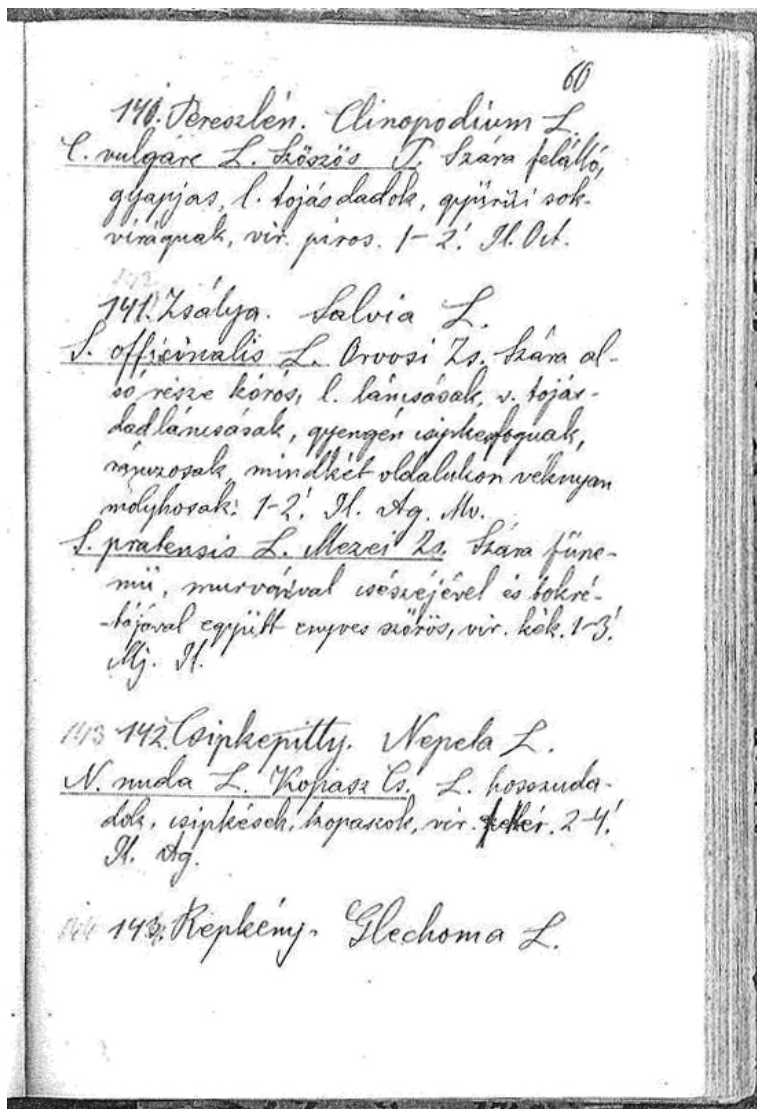 60
140. Pereszlén. Clinopodium L.
C. vulgare L. Szőszös P. Szára felálló,
gyapjas, l. tojásdadok, gyürüi sok-
virágnak, vir. piros. 1-2! Jl. Oct.
142
141. Zsálya. Salvia L.
S. officinalis L. Orvosi Zs. Szára al-
só része kórós, l. láncsásak, v. tojás-
dadláncsásak, gyengén csipkefoguak,
ránczosak, mindkét oldalukon véknyan
molyhosak. 1-2! Jl. Ag. Mv.
S. pratensis L. Mezei Zs. Szára füne-
mü, murváival csészéjével és bokré-
tájával együtt enyves szőrös, vir. kék. 1-3!
Mj. Jl.
143 142. Csipkepitty. Nepeta L.
N. nuda L. Kopasz Cs. L. hosszuda-
dok, csipkések, kopaszok, vir. fehér. 2-4!
Jl. Ag.
144 143. Repkény. Glechoma L.